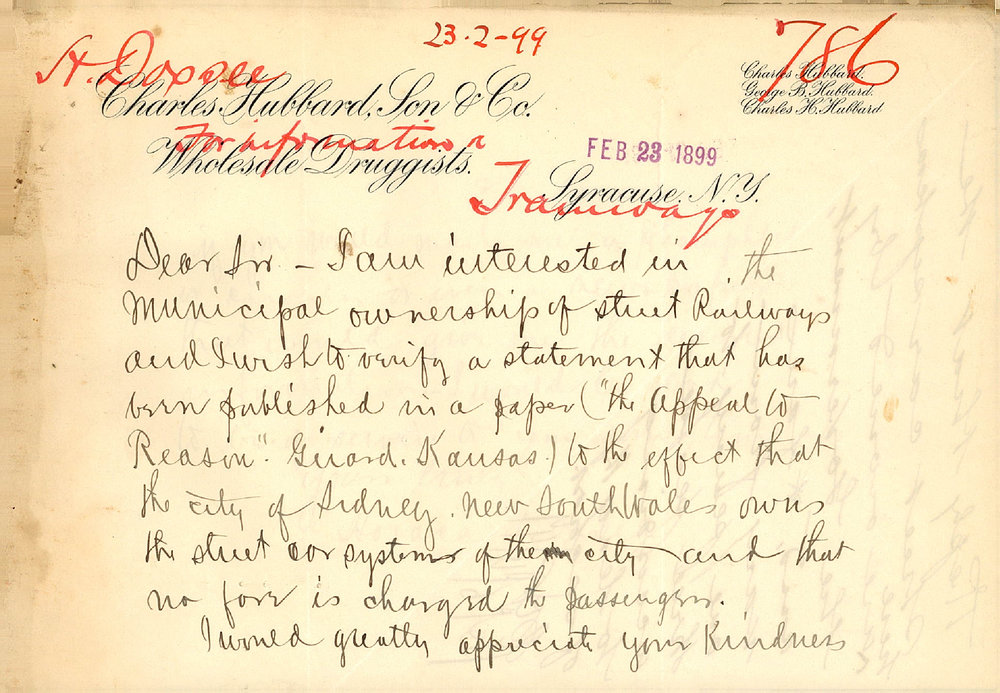 23-2-99
786
H. Doxsee
Charles Hubbard.
George B. Hubbard.
Charles H. Hubbard
Charles Hubbard, Son & Co.
For information
Wholesale Druggists.
FEB 23 1899
Syracuse, N.Y.
Tramways
Dear Sir – I am interested in the
Municipal ownership of street Railways
and I wish to verify a statement that has
been published in a paper ("the Appeal to
Reason". Girard. Kansas.) to the effect that
the city of Sidney. New South Wales owns
the street car systems of the city and that
no fare is charged the passengers.
I would greatly appreciate your Kindness